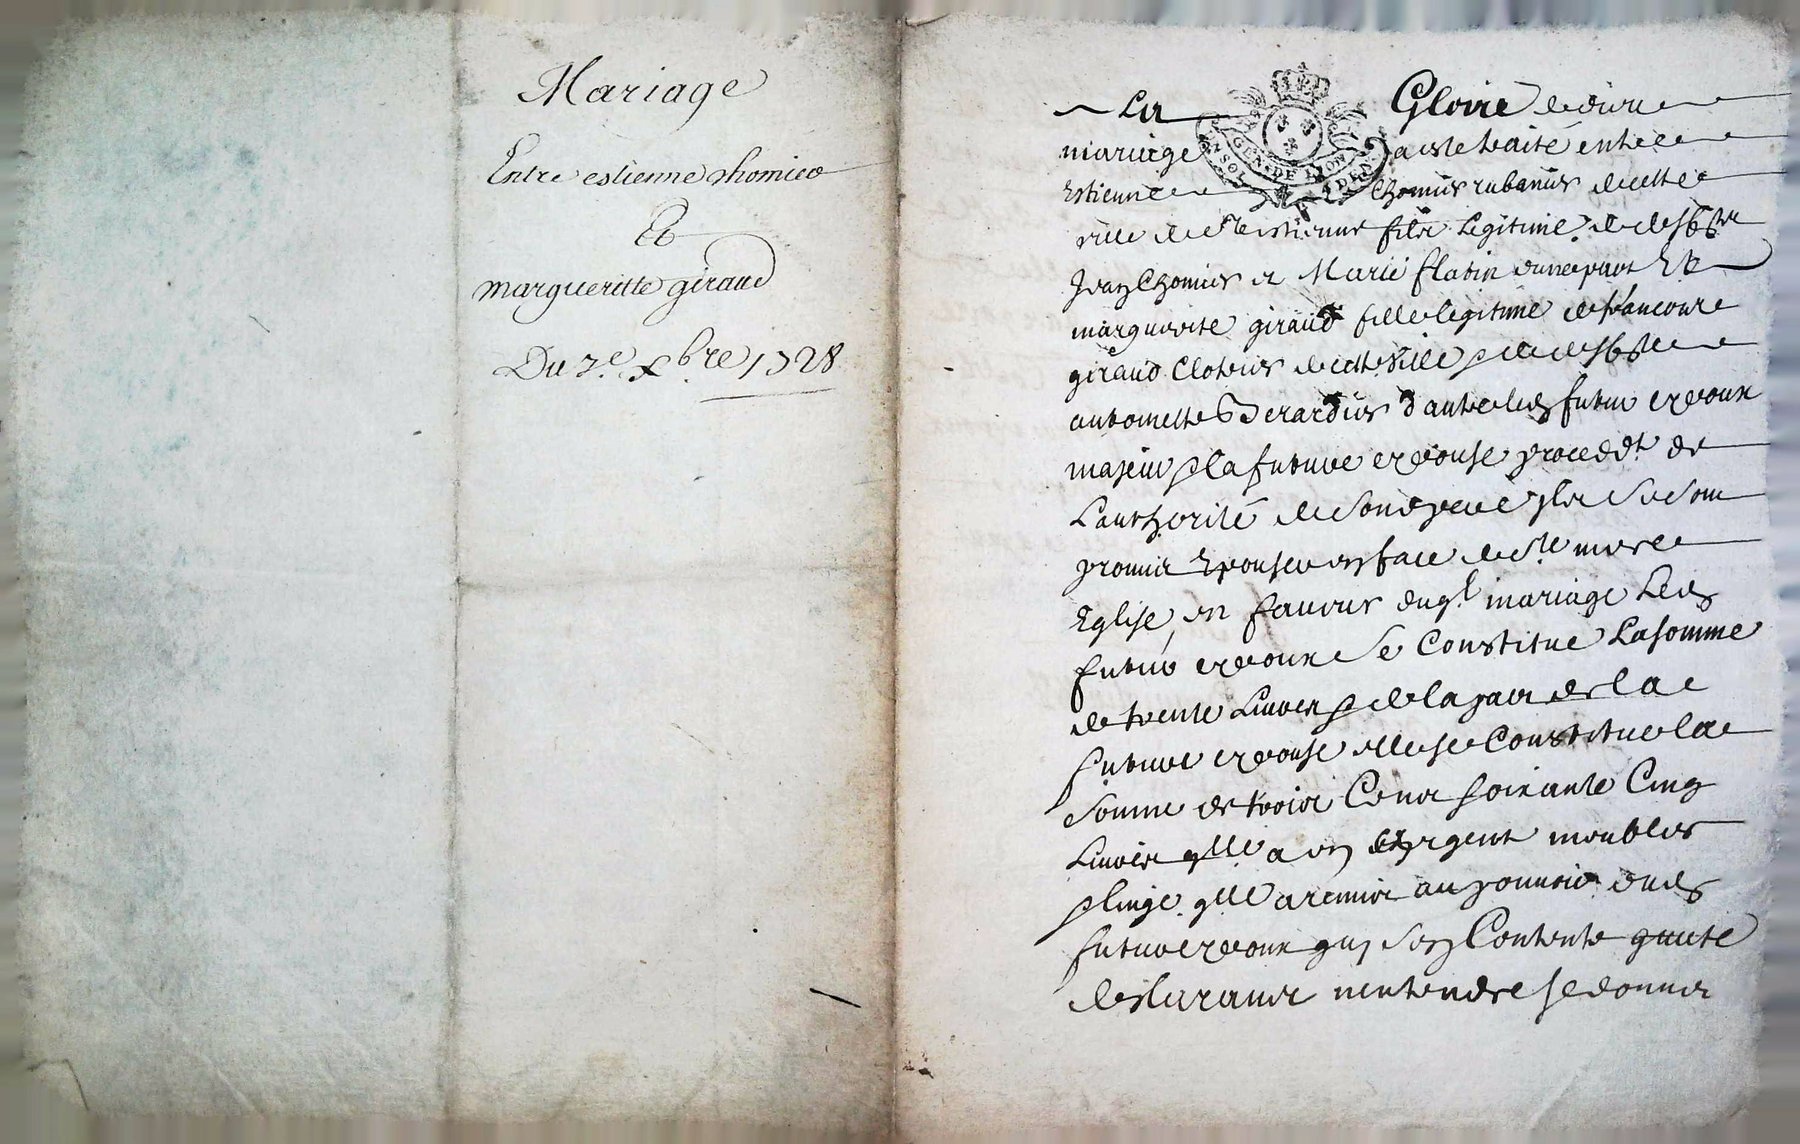 Mariage
Entre estienne thomiero
Et
margueritte giraud
Du 7.e xbre 1728
La Gloire de dieu
mariage a este traité entre
Estienne Chomier rubanier de cette
ville de St estienne fils Legitime de deffst
Jean Chomier et Marie flabin d'une part Et
marguerite giraud fille legitime de francois
giraud Clotier de cette Ville & de deffte
anthoinette Berardier d'autre led futur expoux
majeur & la future expouse procedt de
Lauthorité de son pere Ils se sont
promis Epouser en face de Ste mere
Eglise en faveur duql mariage Led
futur expoux se Constitue La somme
de trente Livres & de la part de la
future expouse elle se Constitue la
somme de trois Cens soixante Cinq
Livres qlle a en argent meubles
& linge qlle a remis au pouvoir dud
futur expoux quy s'en Contente quitte
declarans n'entendre se donner
GEN. DE LYON